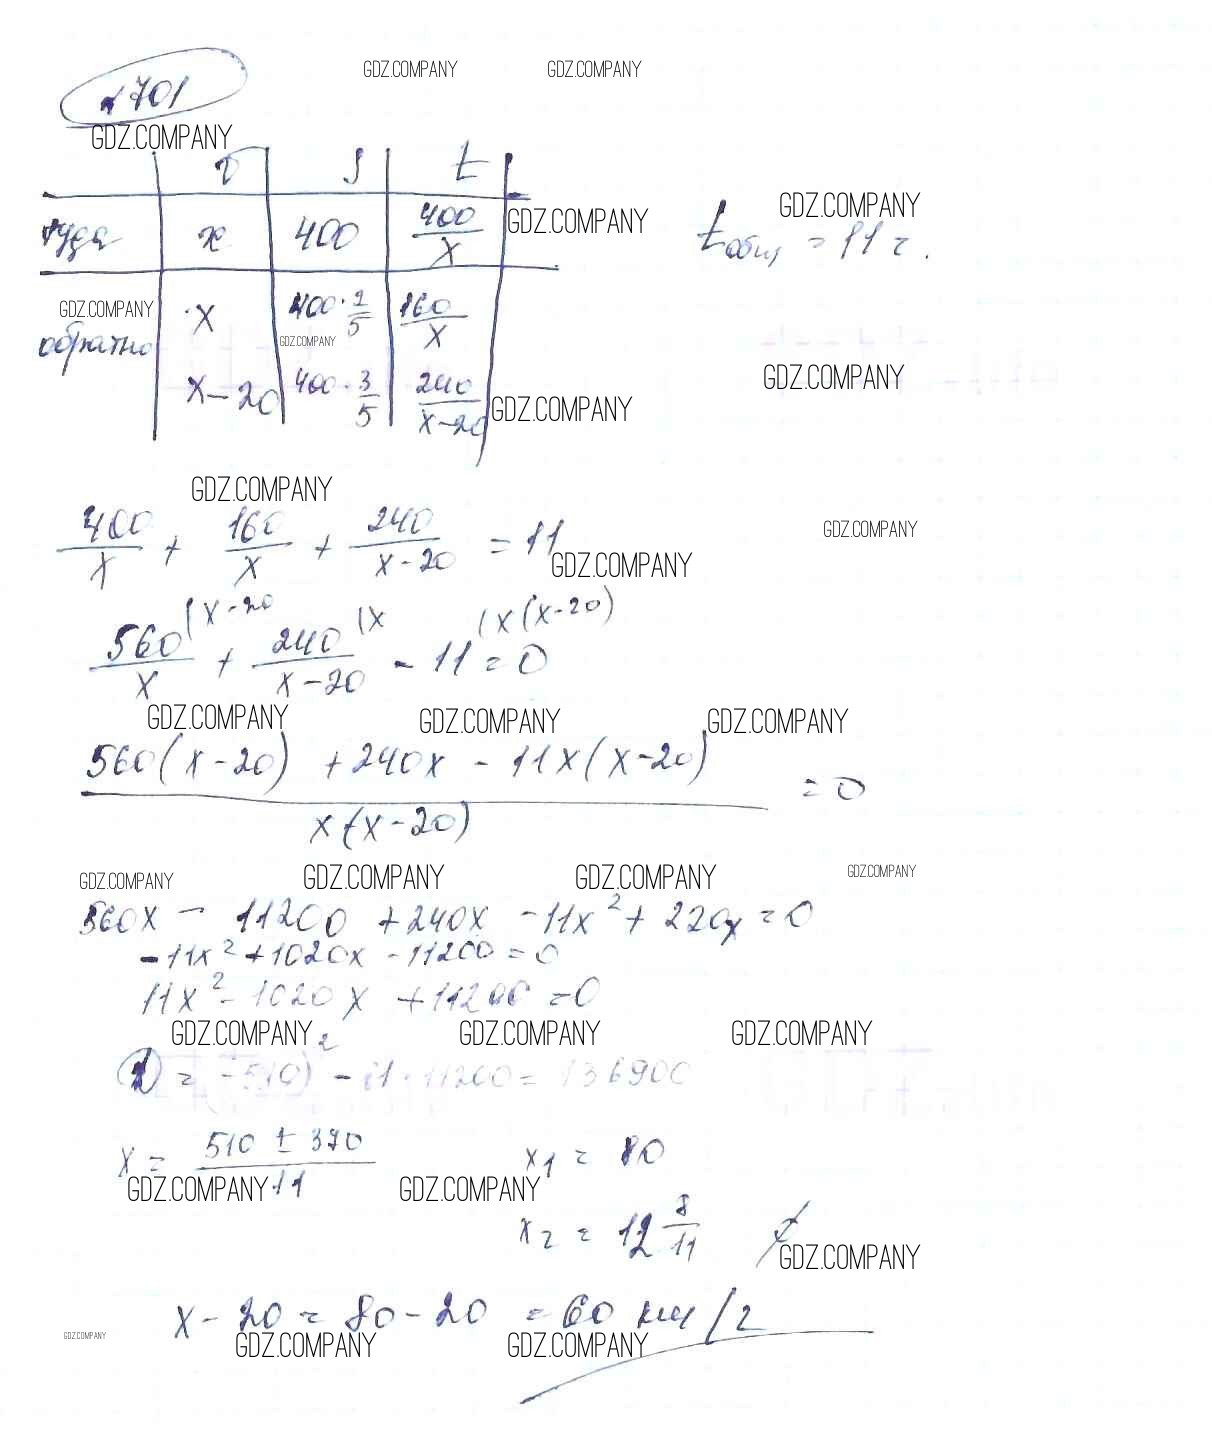 GDZ.COMPANY GDZ.COMPANY
№701
GDZ.COMPANY
v S t
туда x 400 400/x GDZ.COMPANY GDZ.COMPANY
tобщ = 11 ч.
GDZ.COMPANY x 400·2/5 160/x
обратно GDZ.COMPANY
x-20 400·3/5 240/(x-20) GDZ.COMPANY GDZ.COMPANY
GDZ.COMPANY
400/x + 160/x + 240/(x-20) = 11 GDZ.COMPANY
GDZ.COMPANY
(x-20 (x (x(x-20)
560/x + 240/(x-20) - 11 = 0
GDZ.COMPANY GDZ.COMPANY GDZ.COMPANY
560(x-20) + 240x - 11x(x-20)
= 0
x(x-20)
GDZ.COMPANY GDZ.COMPANY GDZ.COMPANY GDZ.COMPANY
560x - 11200 + 240x - 11x² + 220x = 0
-11x² + 1020x - 11200 = 0
11x² - 1020x + 11200 = 0
GDZ.COMPANY GDZ.COMPANY GDZ.COMPANY
D = -510)² - 11·11200 = 136900
x = (510 ± 370)/11 x1 = 80
GDZ.COMPANY GDZ.COMPANY
x2 = 12 8/11
GDZ.COMPANY
x - 20 = 80 - 20 = 60 км/ч
GDZ.COMPANY GDZ.COMPANY GDZ.COMPANY